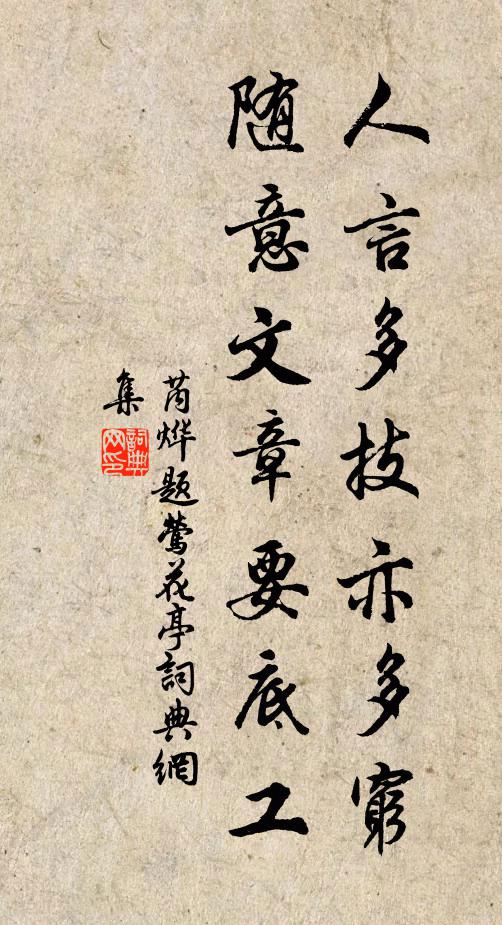 人言多技亦多窮
随意文章要底工
芮烨题鶯花亭詞典網
集
詞典
网印